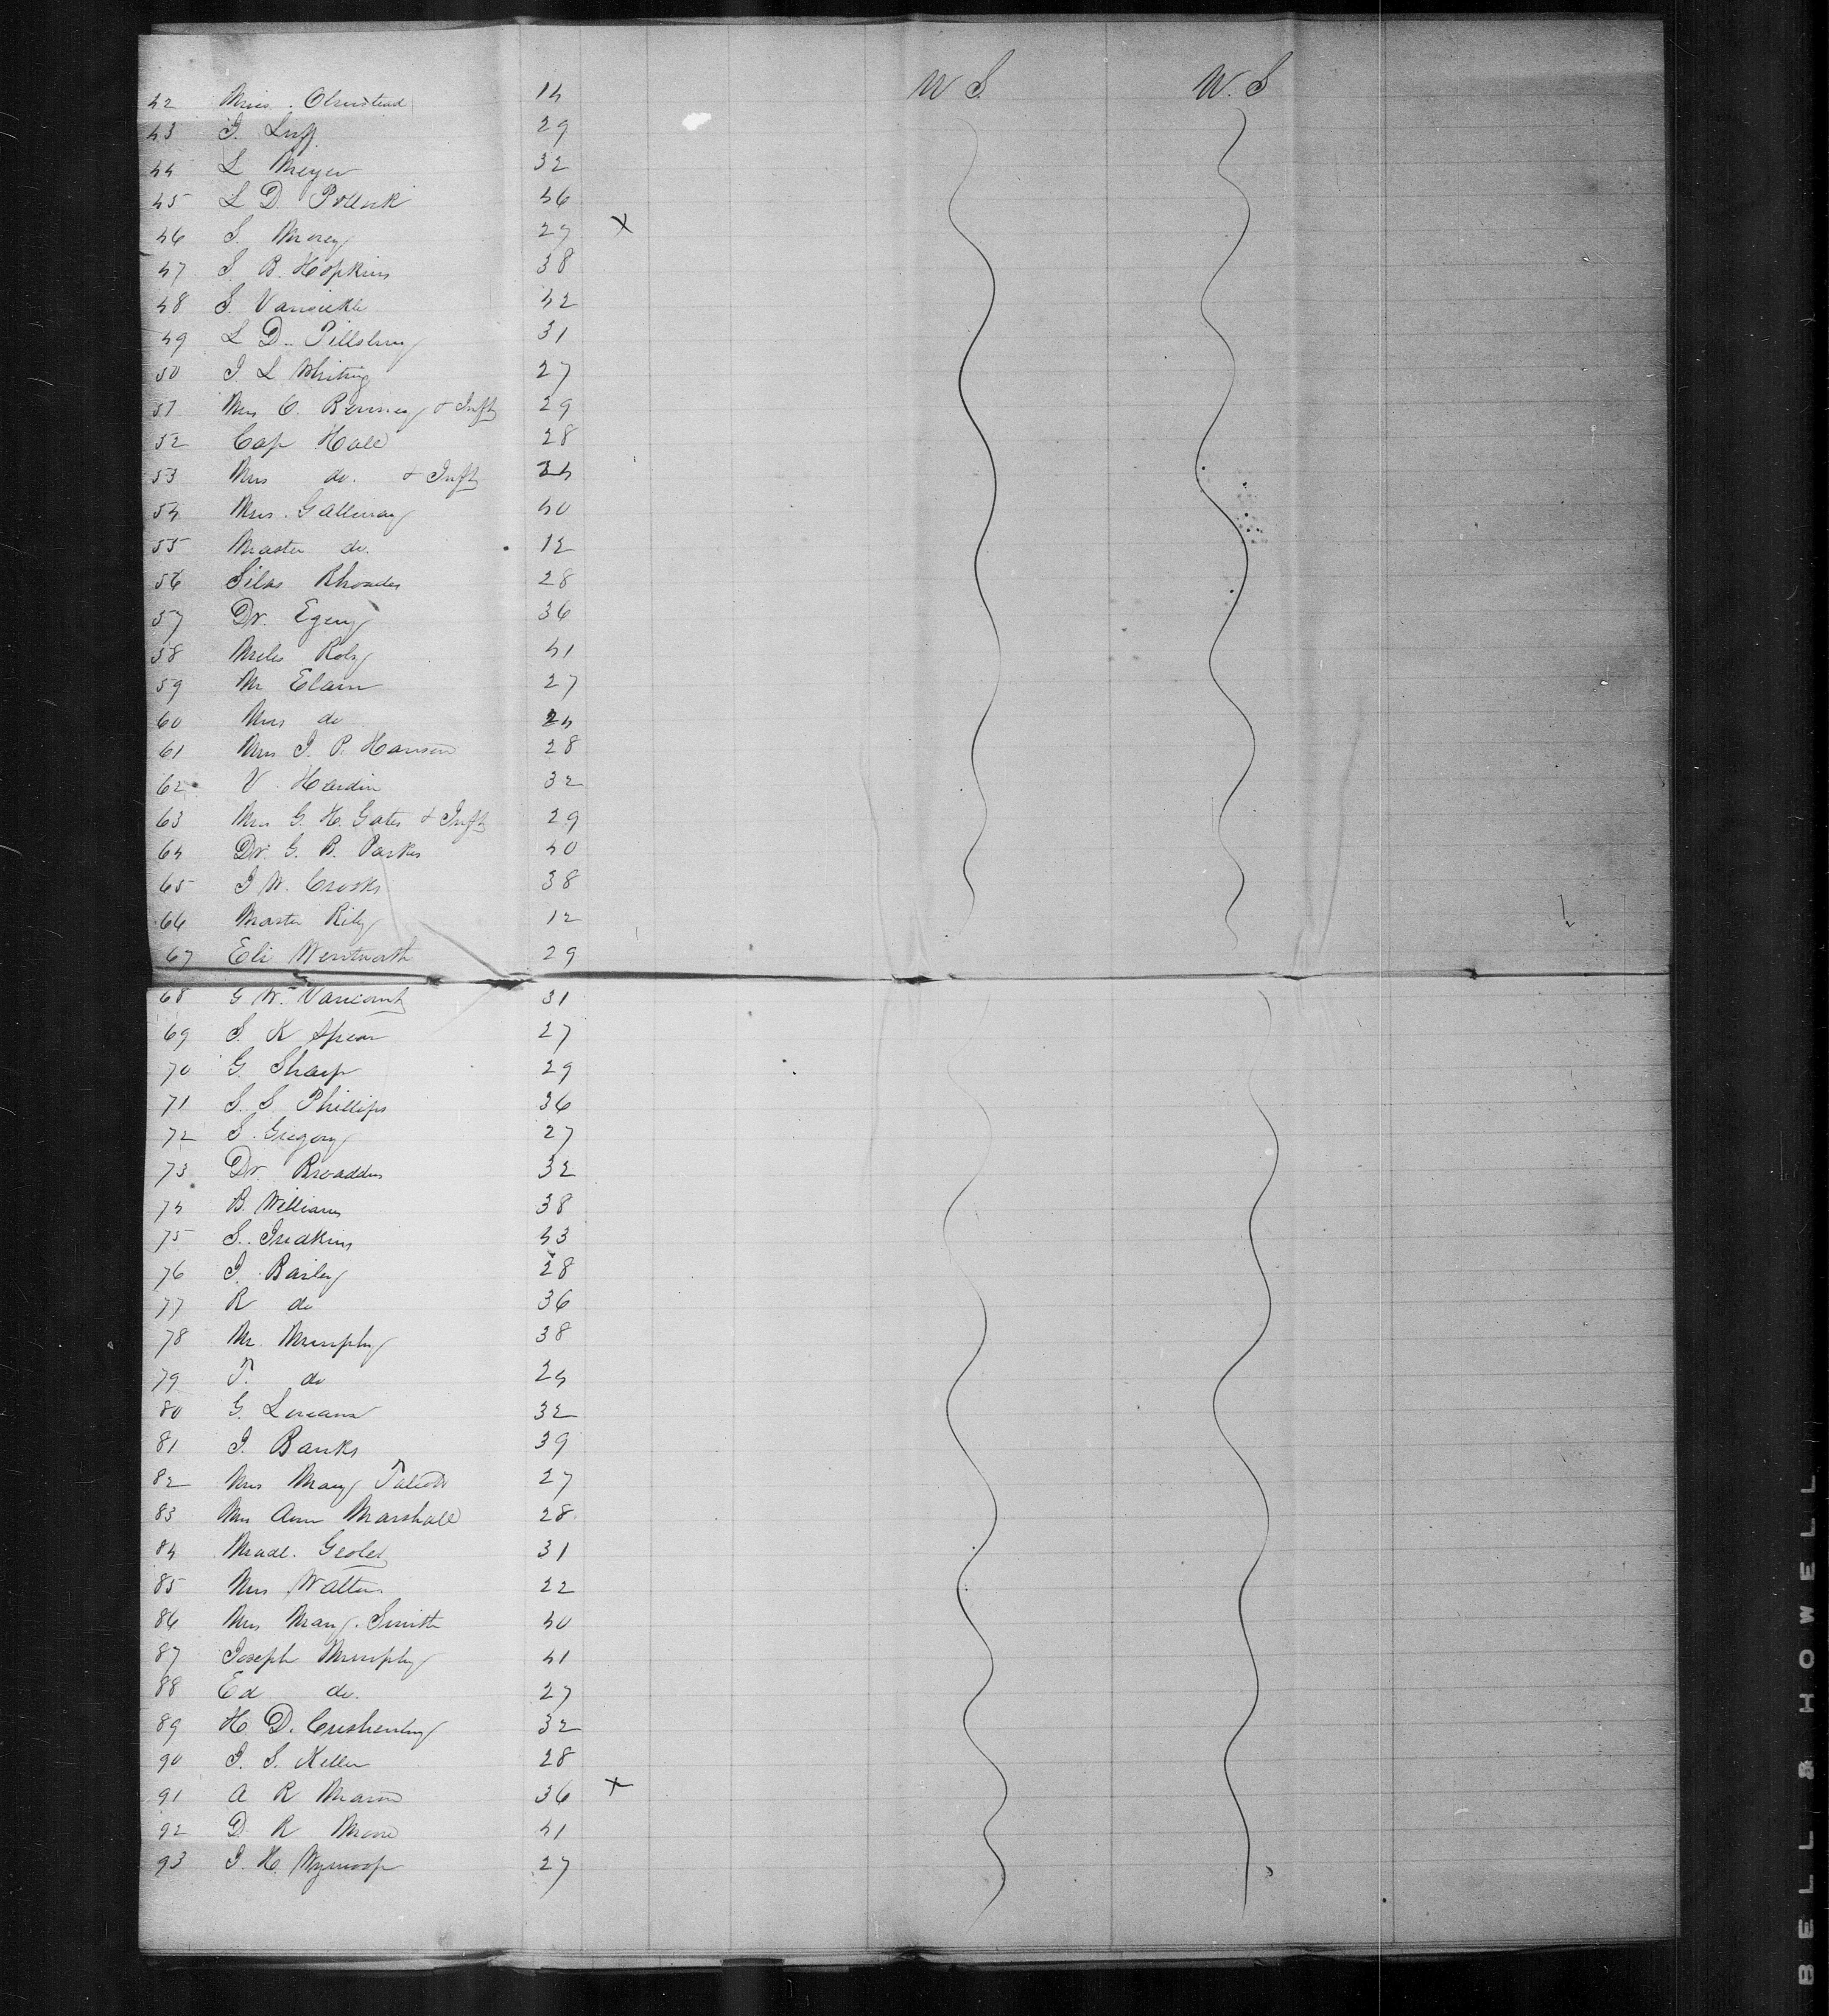 W. S. W. S
42 Miss Olmstead 14
43 J. Luff 29
44 L Meyer 32
45 L D. Pollock 46
46 S. Morey 27 x
47 S B. Hopkins 38
48 S. Vansickle 42
49 L D. Pillsbury 31
50 J L Whiting 27
51 Mrs C. Benney & Inft 29
52 Cap Hall 28
53 Mrs do. & Inft 24
54 Mrs. Galloway 40
55 Master do. 12
56 Silas Rhoades 28
57 Dr. Egery 36
58 Miles Roby 41
59 Mr Elam 27
60 Mrs do 24
61 Mrs J. P. Hanson 28
62 V. Hardin 32
63 Mrs G. H. Gates & Inft 29
64 Dr. G. B. Parker 40
65 J W. Crooks 38
66 Master Rily 12
67 Eli Wentworth 29
68 G W. Vancourt 31
69 S. K Spear 27
70 G. Sharp 29
71 S. S. Phillips 36
72 S. Gregory 27
73 Dr. Broaddus 32
74 B. Williams 38
75 S. 43
76 J. Bailey 28
77 R do 36
78 Mr. Murphy 38
79 T. do 24
80 G. 32
81 J. Banks 39
82 Mrs Mary Talcott 27
83 Mrs Ann Marshall 28
84 Madl. Grolet 31
85 Mrs Walters 22
86 Mrs Mary Smith 40
87 Joseph Murphy 41
88 Ed do. 27
89 H. D. 32
90 J. S. Keller 28
91 A R Mason 36 x
92 D. R Moore 41
93 J. H. Wynkoop 27
BELL & HOWELL